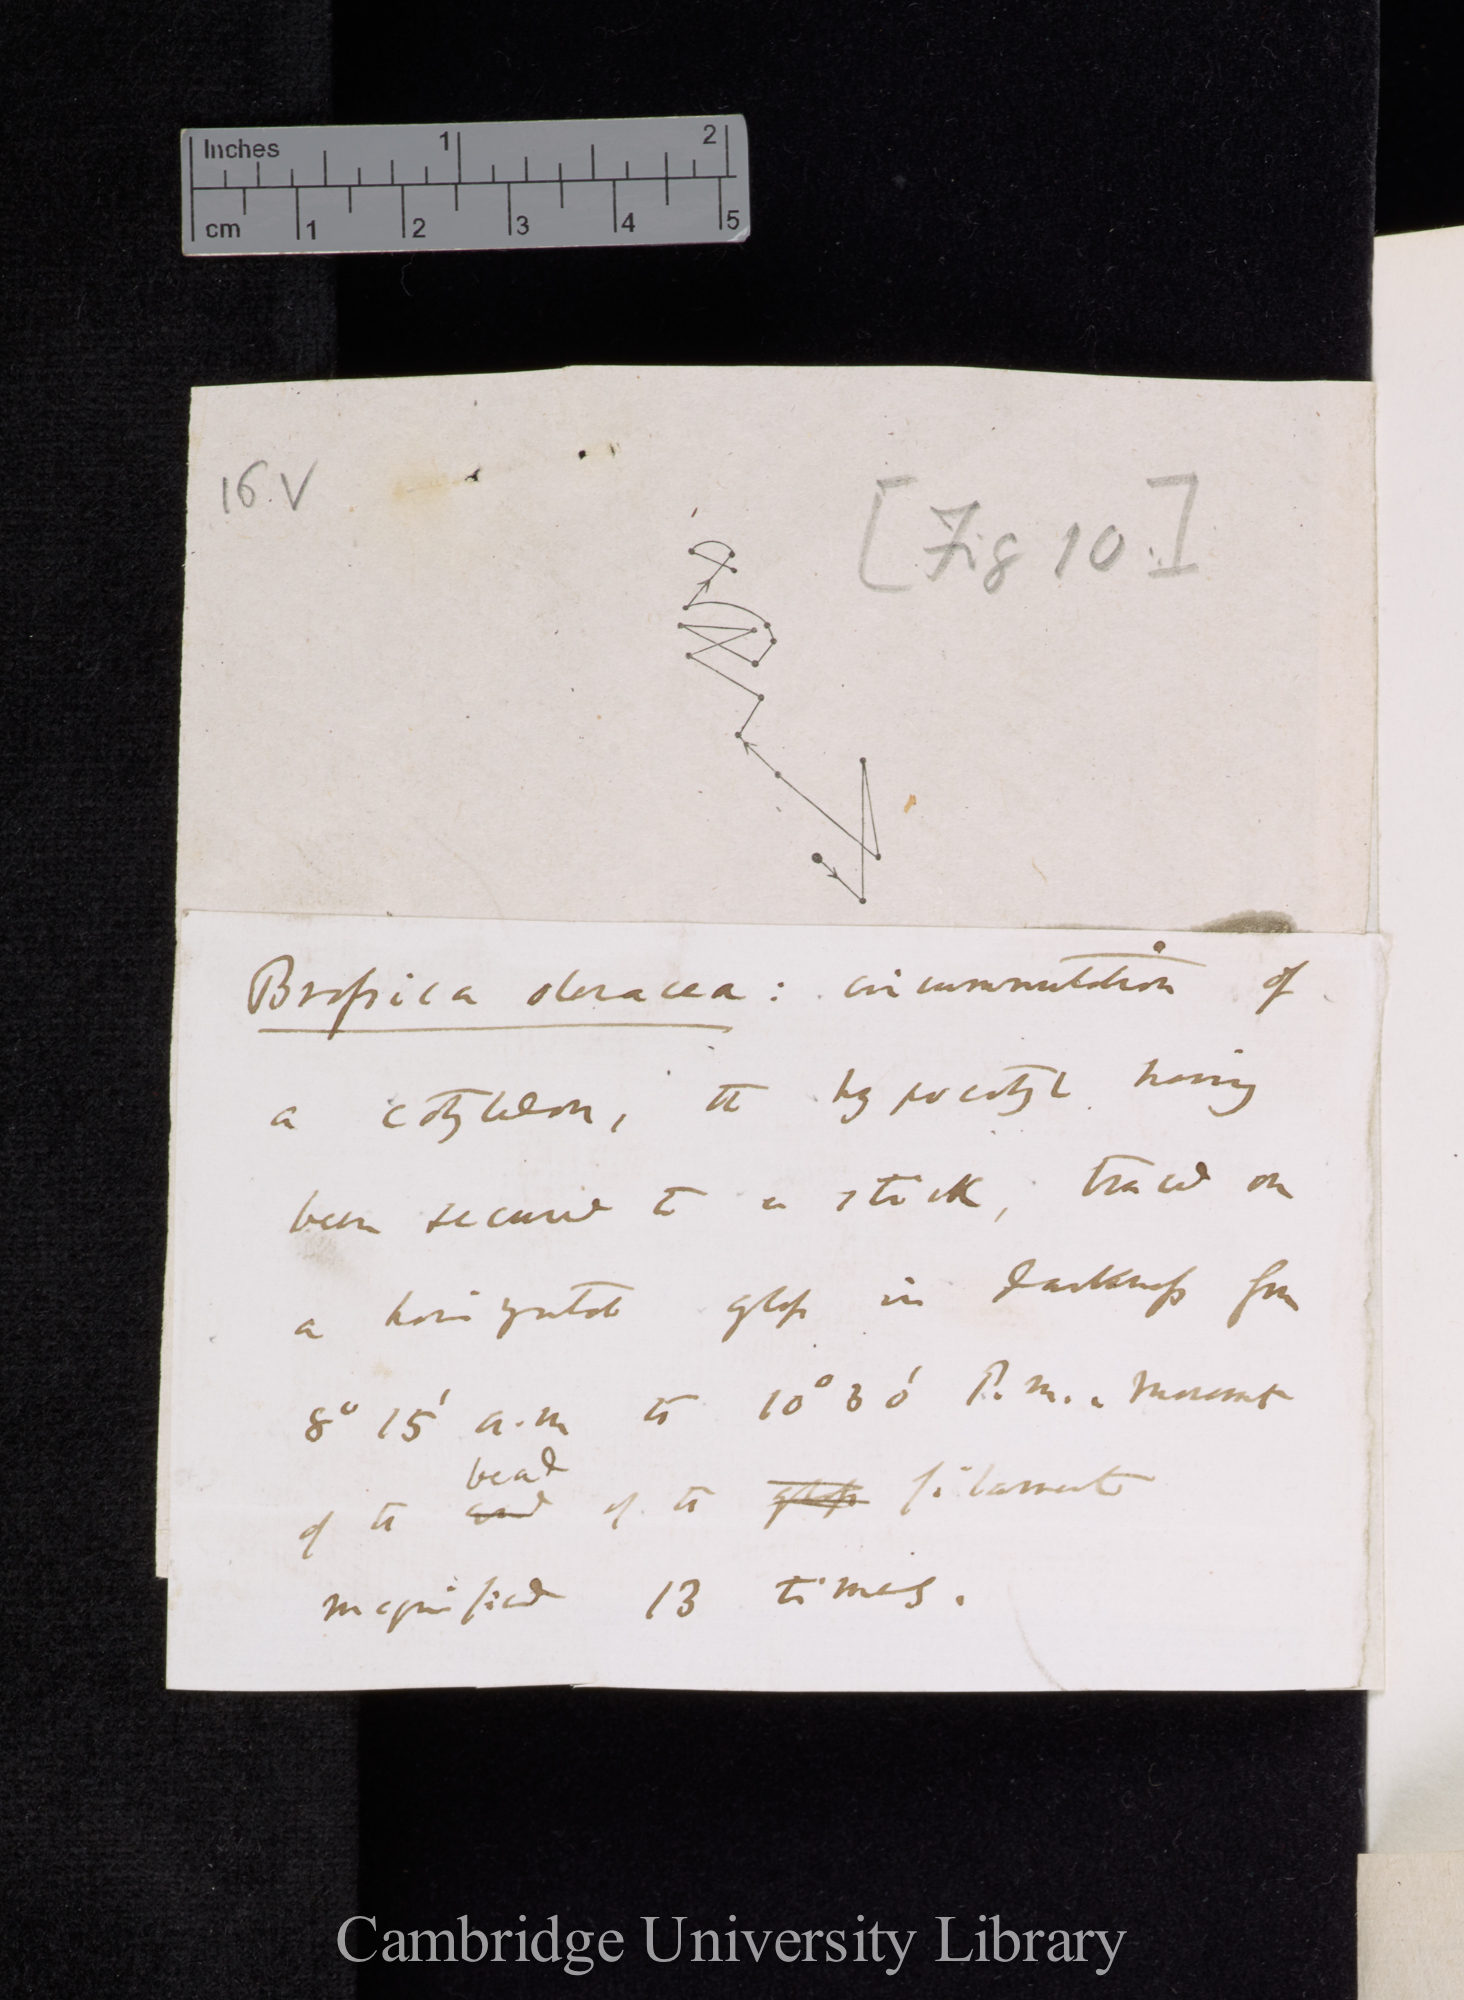 Inches 1 2
cm 1 2 3 4 5
16.V
[Fig 10.]
Brassica oleracea: circumnutation of
a cotyledon, the hypocotyl having
been secured to a stick, traced on
a horizontal glass in darkness from
8° 15' a.m to 10° 30' P.m.. Movement
bead
of the end of the glass filament
magnified 13 times.
Cambridge University Library